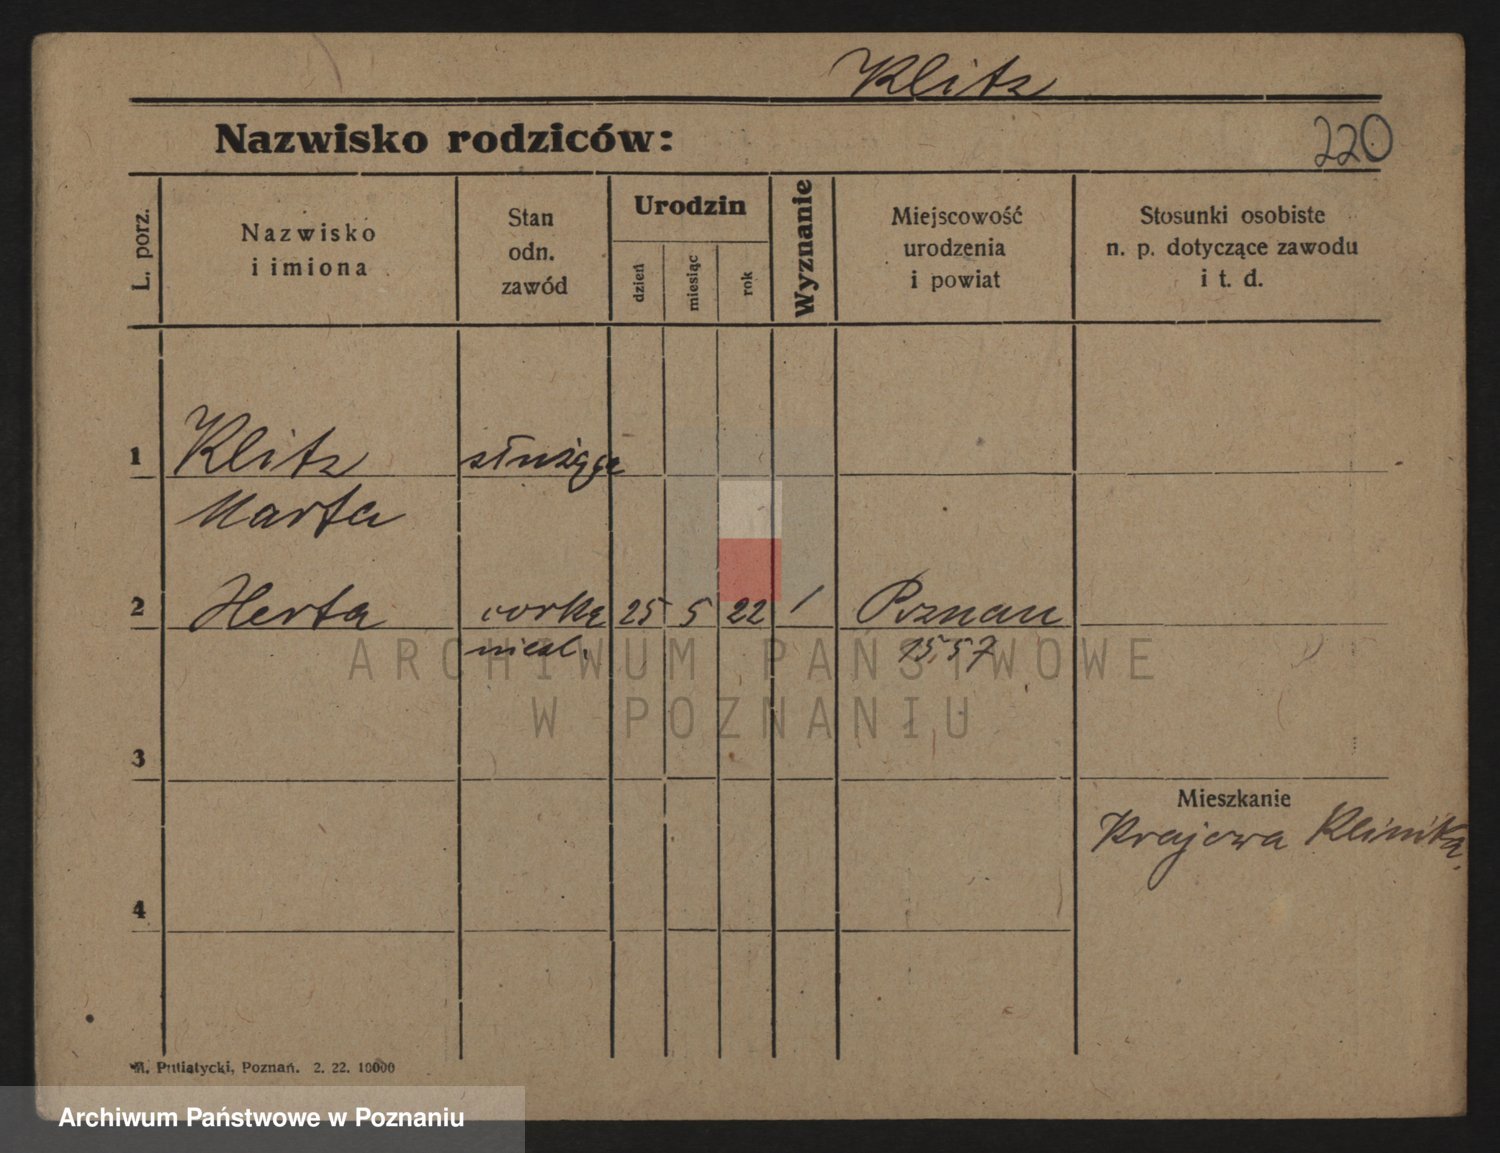 Klitz
Nazwisko rodziców:
220
L. porz.
Nazwisko
i imiona
Stan
odn.
zawód
Urodzin
dzień
miesiąc
rok
Wyznanie
Miejscowość
urodzenia
i powiat
Stosunki osobiste
n. p. dotyczące zawodu
i t. d.
1 Klitz służąca
Marta
2 Herta corka 25 5 22 / Poznan
niezl. 1557
ARCHIWUM PAŃSTWOWE
W POZNANIU
3
Mieszkanie
Krajowa Klinika.
4
M. Putiatycki, Poznań. 2. 22. 10000
Archiwum Państwowe w Poznaniu